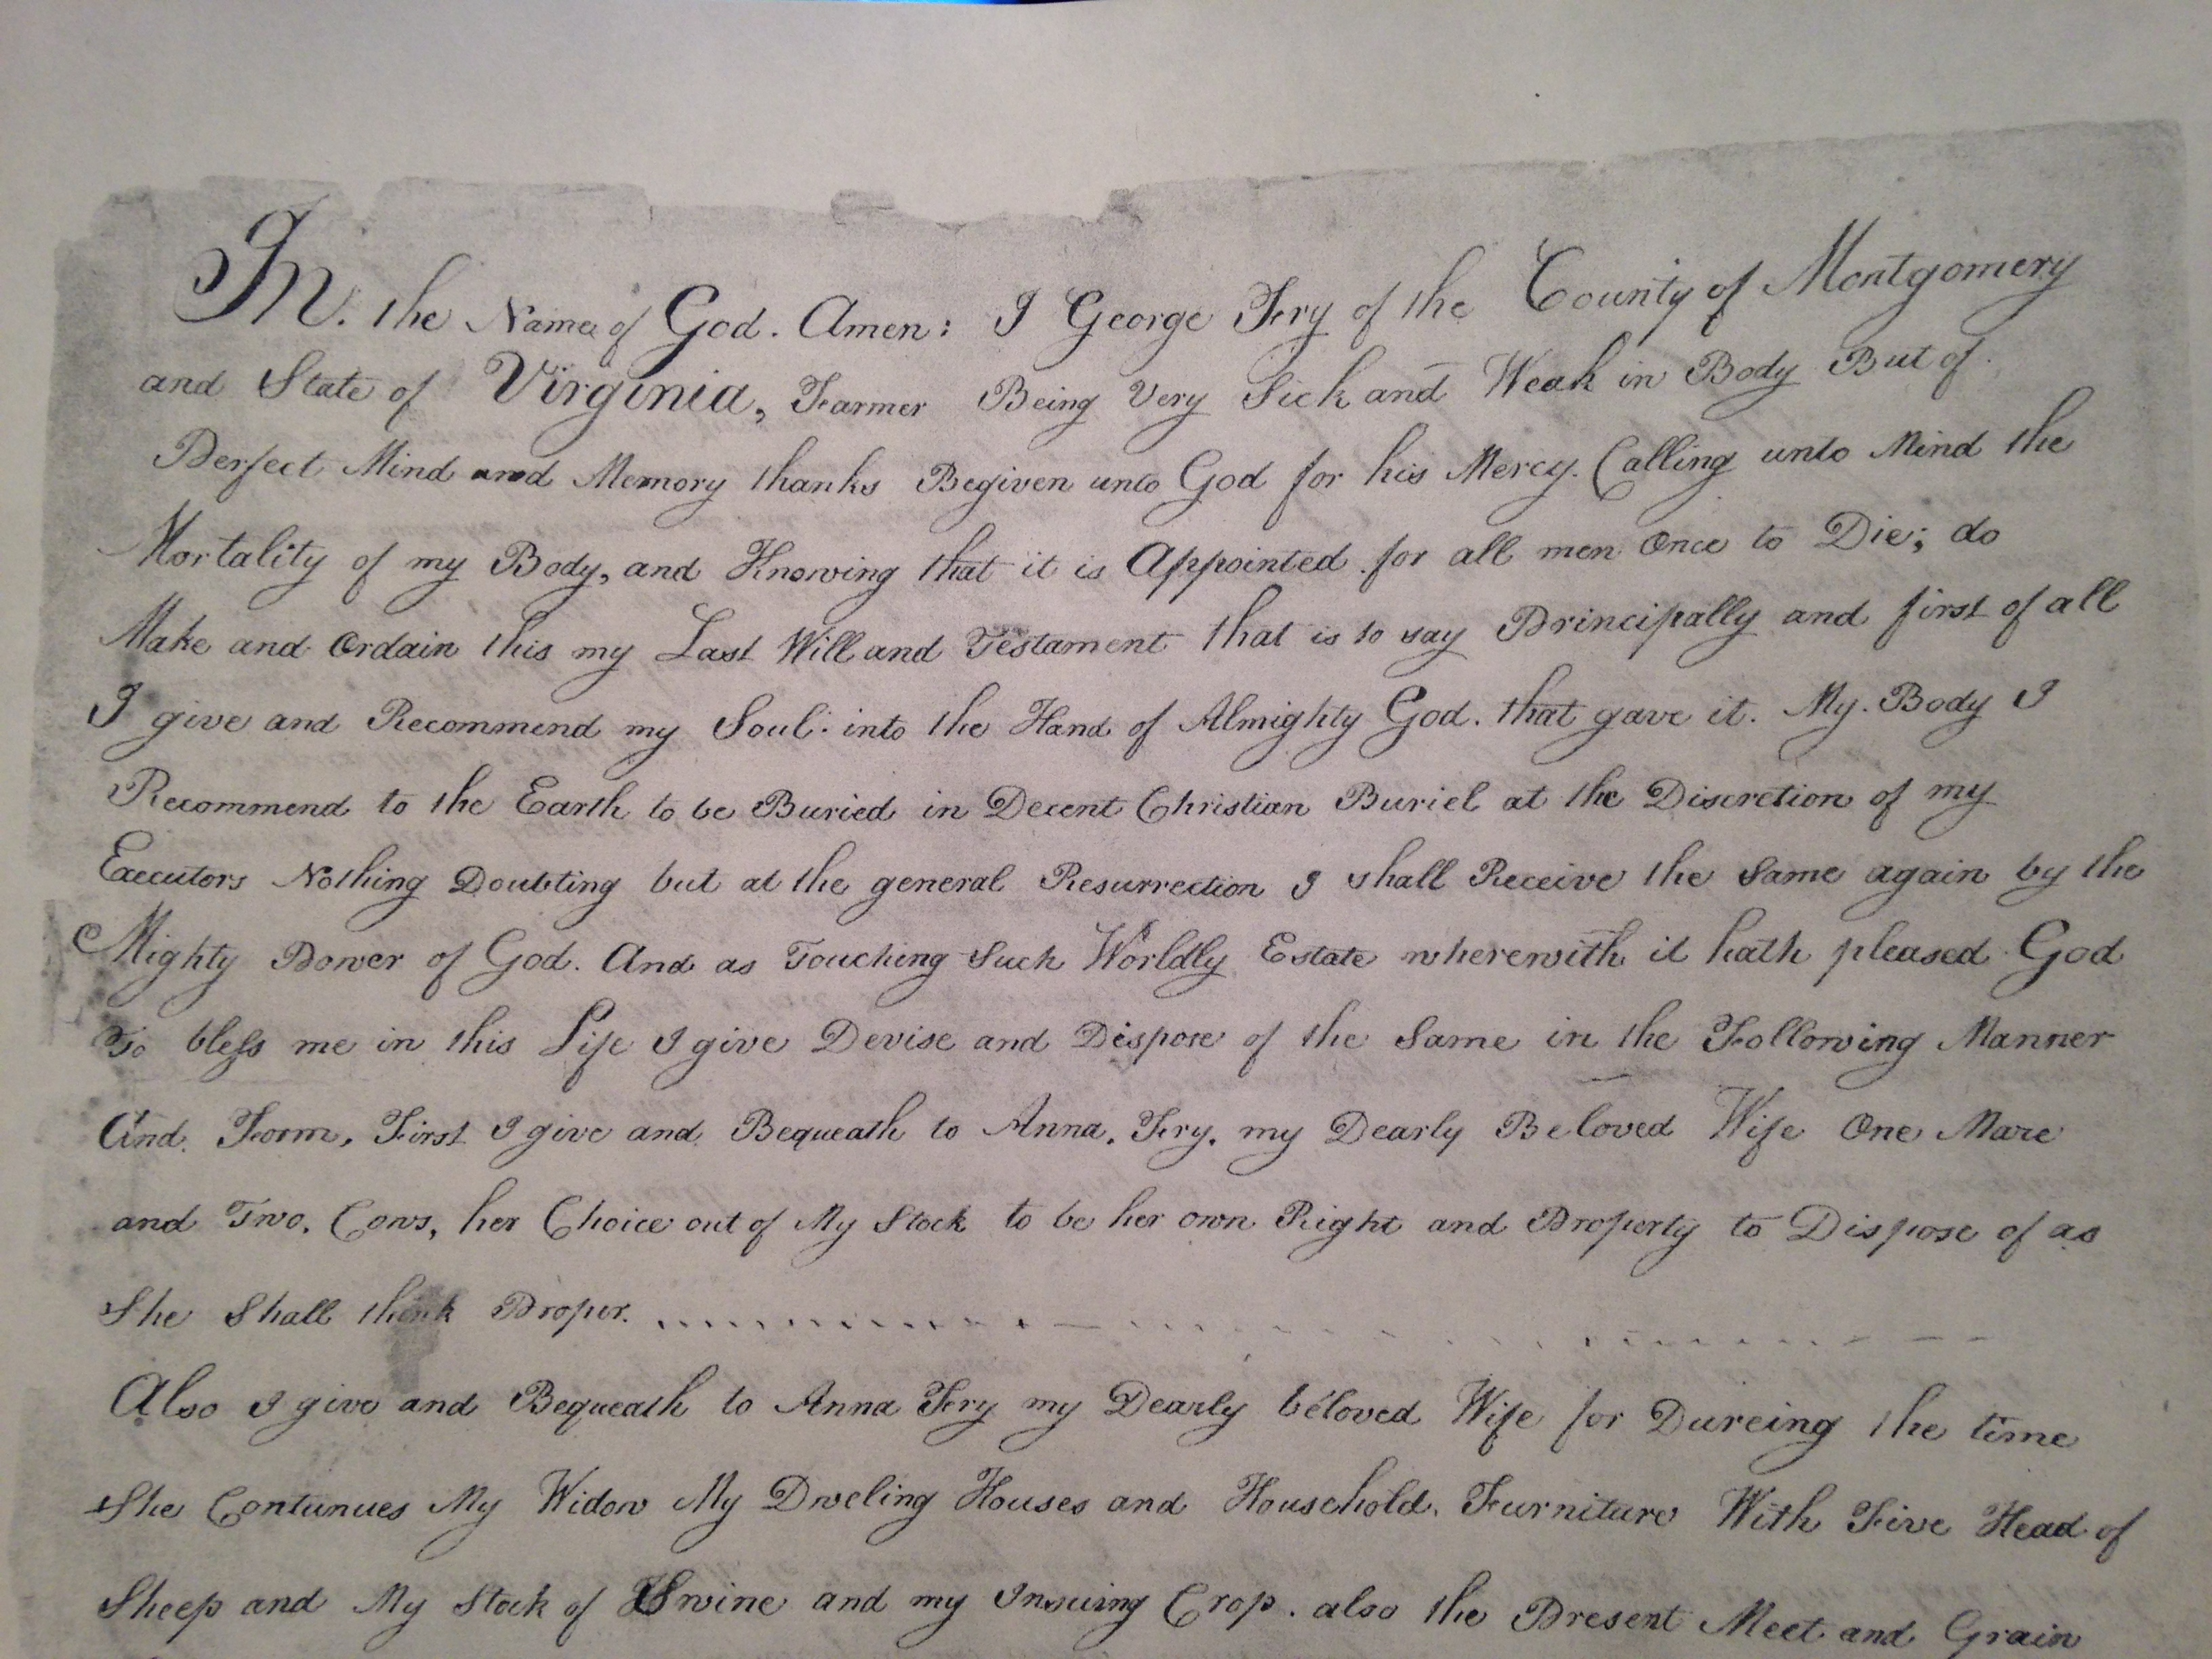 In. the Name of God. Amen: I George Fry of the County of Montgomery
and State of Virginia, Farmer Being Very Sick and Weak in Body But of
Perfect Mind and Memory thanks Begiven unto God for his Mercy. Calling unto Mind the
Mortality of my Body, and Knowing that it is Appointed for all men Once to Die; do
Make and Ordain this my Last Will and Testament that is to say Principally and first of all
I give and Recommend my Soul: into the Hand of Almighty God. that gave it. My. Body I
Recommend to the Earth to be Buried in Decent Christian Buriel at the Discretion of my
Executors Nothing Doubting but at the general Resurrection I shall Receive the Same again by the
Mighty Power of God. And as Touching Such Worldly Estate wherewith it hath pleased God
To bless me in this Life I give Devise and Dispose of the Same in the Following Manner
And. Form. First I give and Bequeath to Anna. Fry. my Dearly Beloved Wife One Mare
and Two. Cows, her Choice out of My Stock to be her own Right and Property to Dispose of as
She Shall think Proper.
Also I give and Bequeath to Anna Fry my Dearly beloved Wife for Dureing the time
She Contunues My Widow My Dweling Houses and Household. Furniture With Five Head of
Sheep and My Stock of Swine and my Insuing Crop. also the Present Meet and Grain